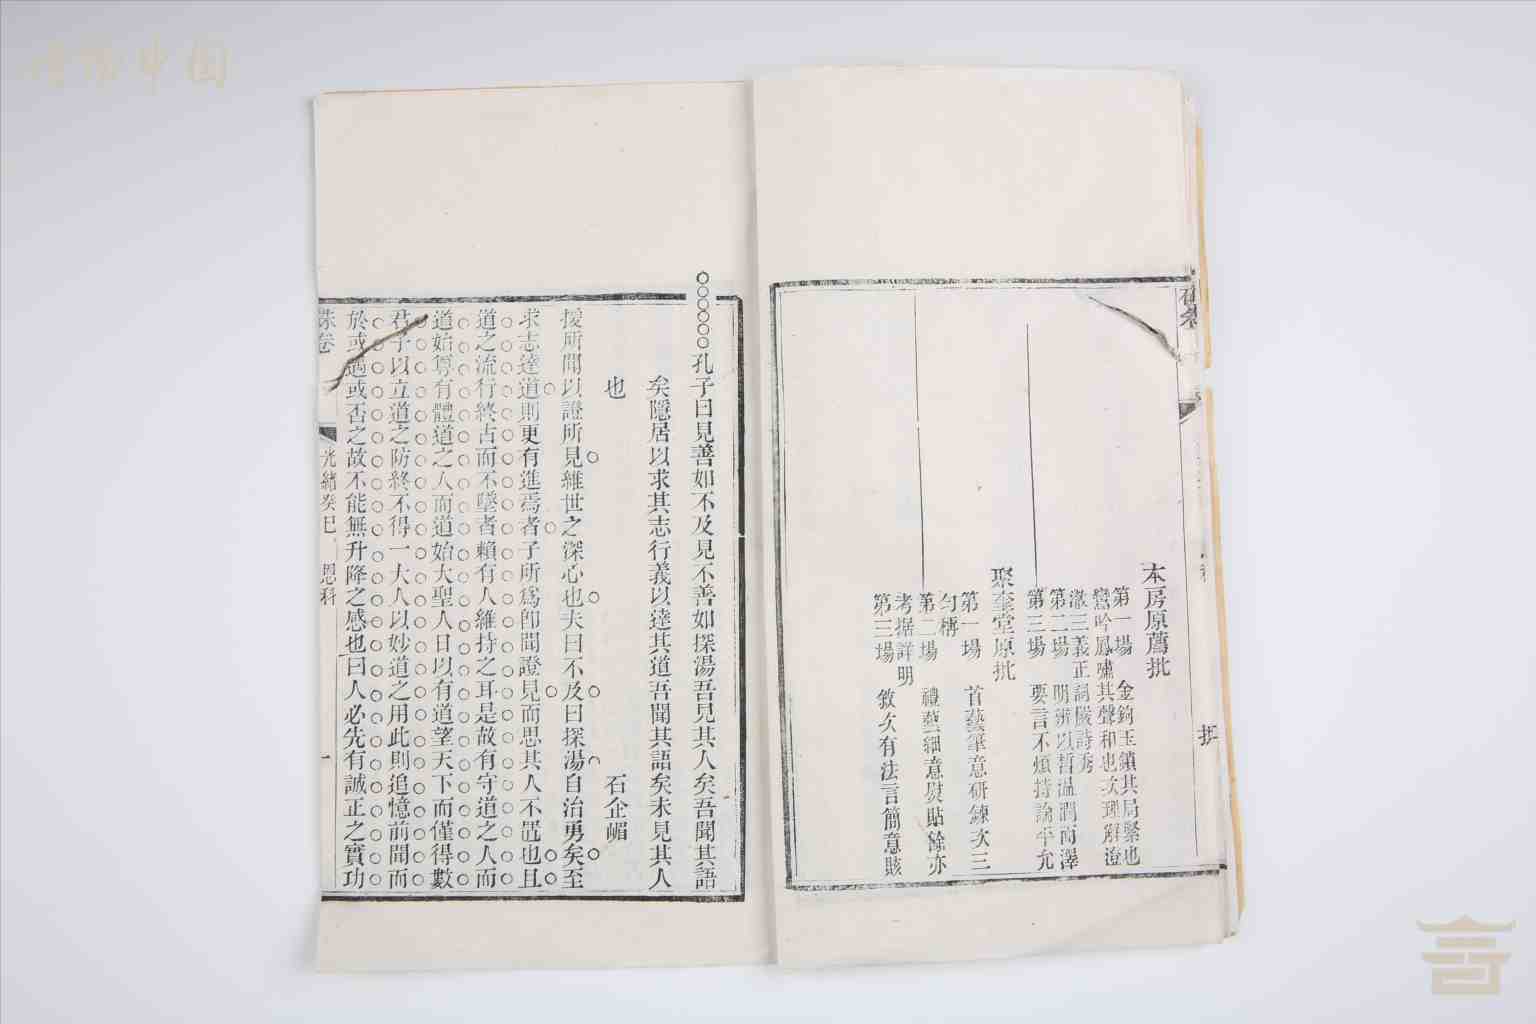 本房原薦批
第一場 金鉤玉鎖其局緊也
鸞吟鳳嘯其聲和也次理解澄
澈三義正詞嚴詩秀
第二場 明辨以晢溫潤而澤
第三場 要言不煩持論平允
聚奎堂原批
第一場 首藝筆意研鍊次三
勻稱
第二場 禮藝細意熨貼餘亦
考据詳明
第三場 敘次有法言簡意賅
孔子曰見善如不及見不善如探湯吾見其人矣吾聞其語
矣隱居以求其志行義以達其道吾聞其語矣未見其人
也 石企嵋
援所聞以證所見維世之深心也夫曰不及曰探湯自治勇矣至
求志達道則更有進焉者子所爲卽聞證見而思其人不置也且
道之流行終古而不墜者賴有人維持之耳是故有守道之人而
道始尊有體道之人而道始大聖人日以有道望天下而僅得數
君子以立道之防終不得一大人以妙道之用此則追憶前聞而
於或過或否之故不能無升降之感也曰人必先有誠正之實功
硃卷 光緒癸巳 恩科 一